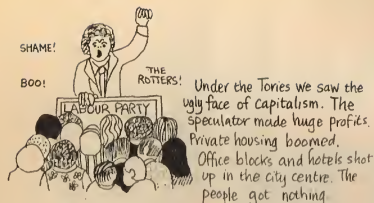 SHAME!
BOO!
THE
ROTTERS!
LABOUR PARTY
Under the Tories we saw the
ugly face of capitalism. The
speculator made huge profits.
Private housing boomed.
Office blocks and hotels shot
up in the city centre. The
people got nothing.